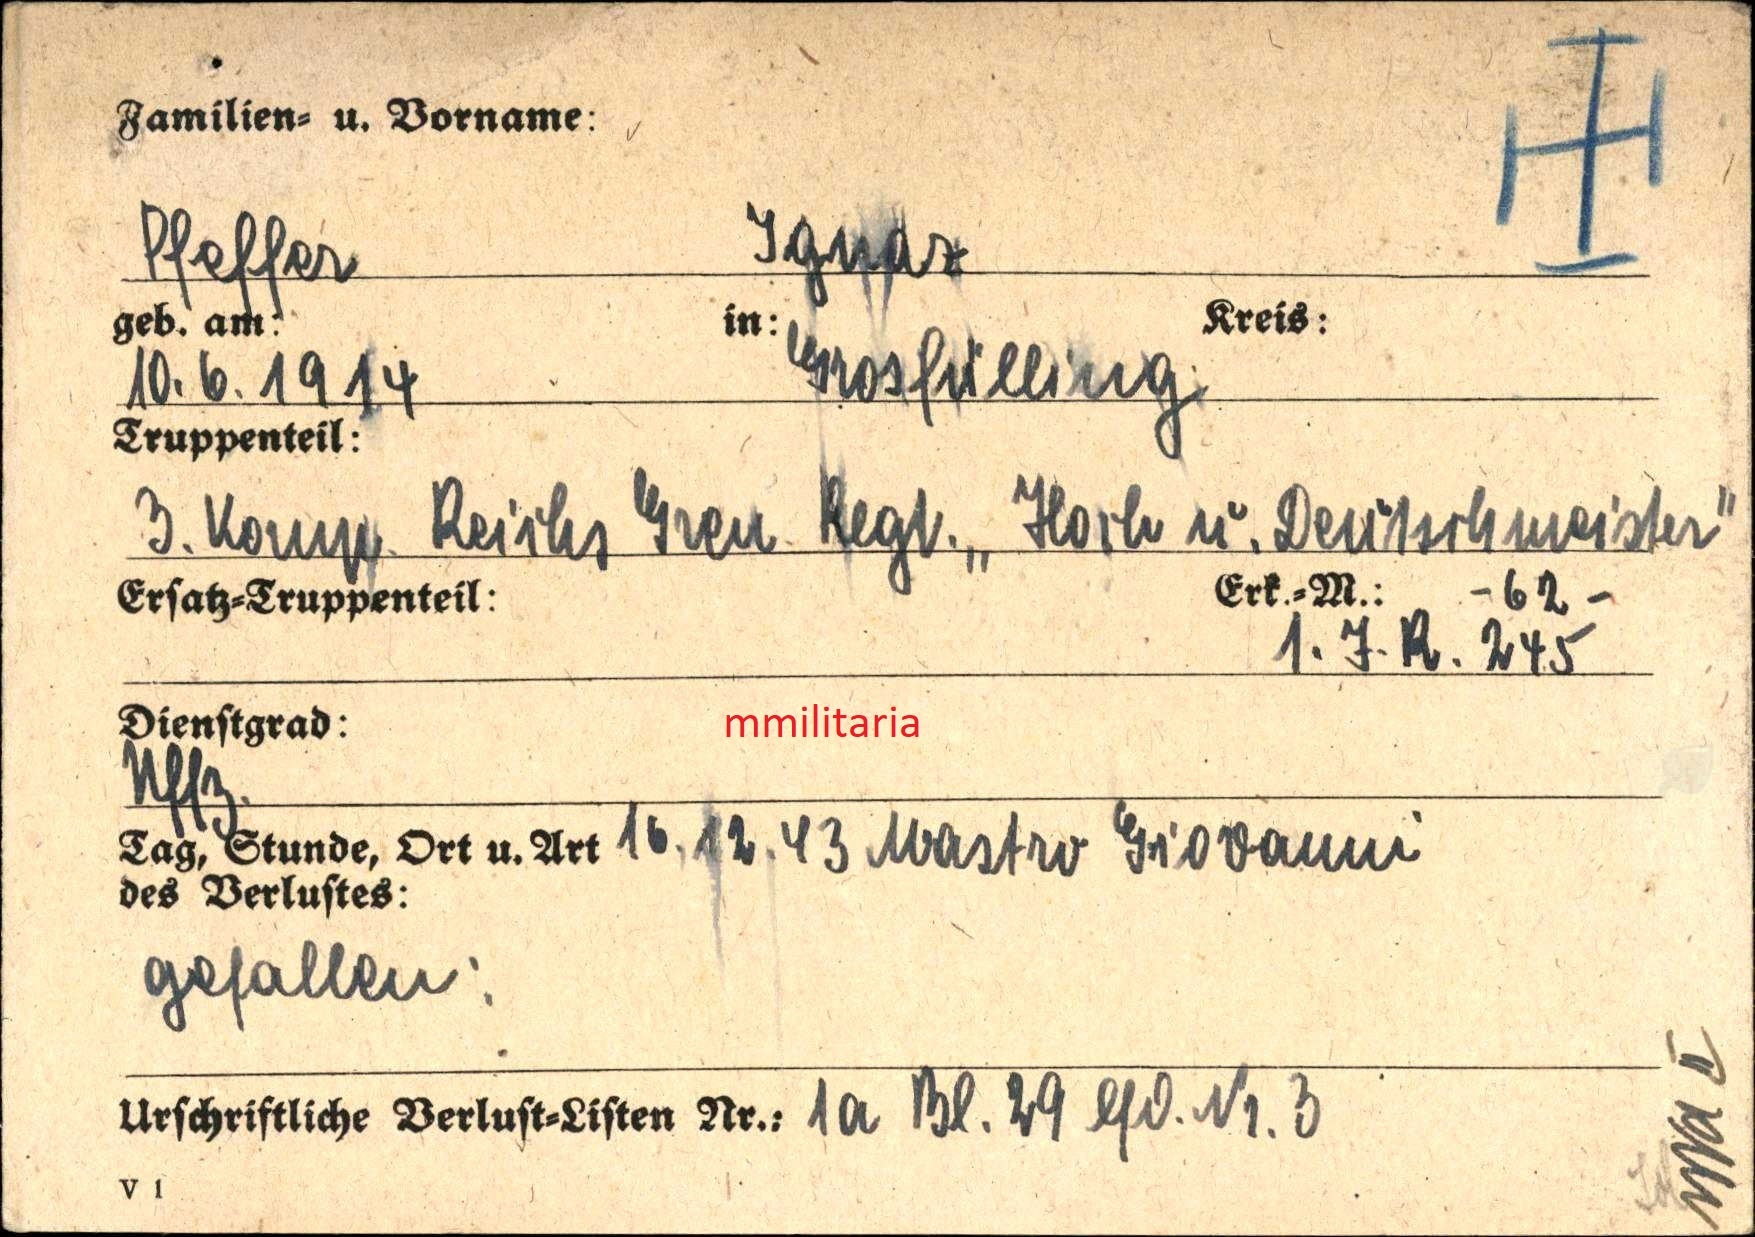 Familien- u. Vorname:
Pfeffer Ignaz
geb. am: in: Kreis:
10.6.1914 Grosfülling
Truppenteil:
3. Komp. Reichs Gren. Regt. „Hoch u. Deutschmeister"
Ersatz-Truppenteil: Erk.-M.: -62-
1. J. R. 245
Dienstgrad:
mmilitaria
Uffz.
Tag, Stunde, Ort u. Art 16.12.43 Mastro Giovanni
des Verlustes:
gefallen:
Urschriftliche Verlust-Listen Nr.: 1a Bl. 29 lfd. Nr. 3
V 1